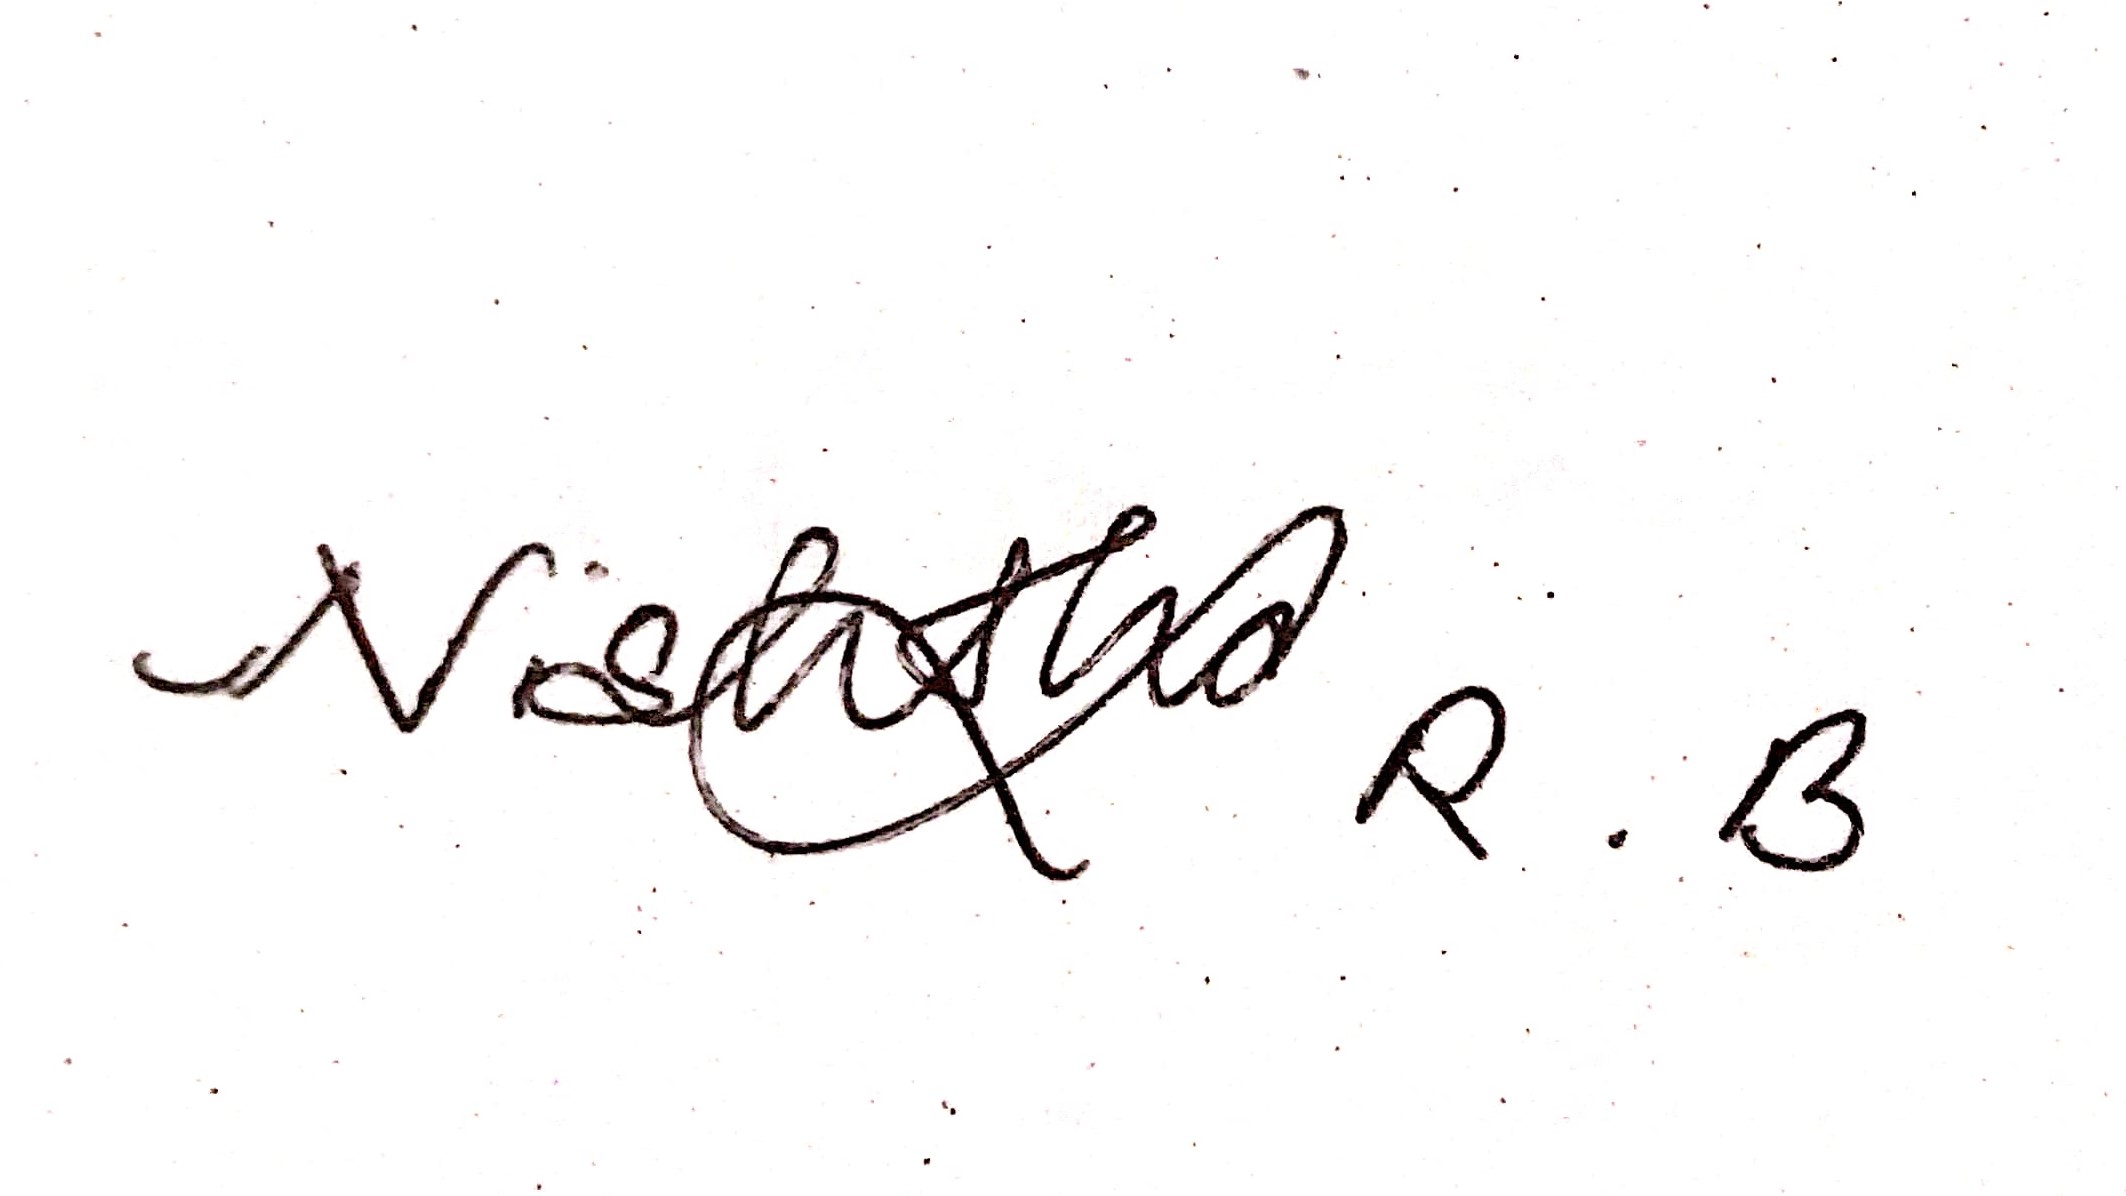 Nishtha R.B